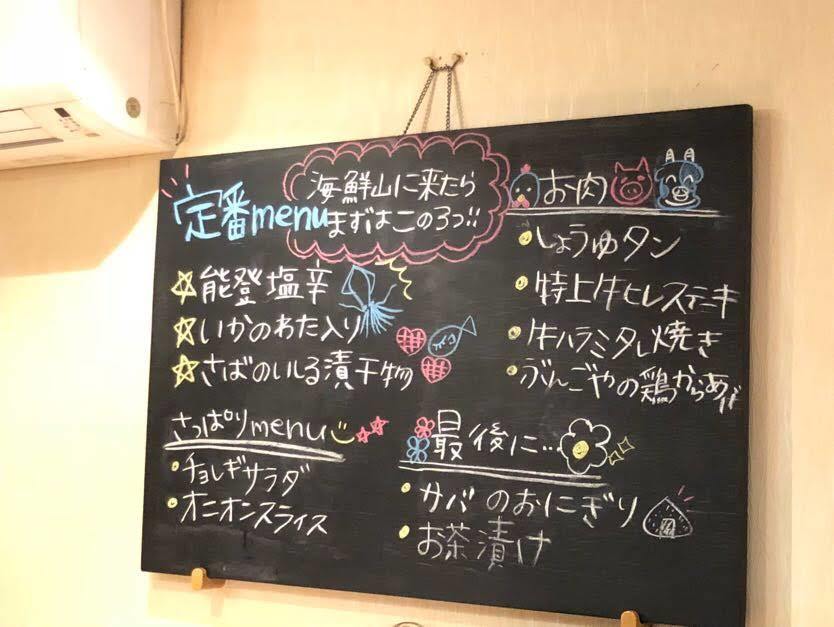 定番menu
海鮮山に来たら
まずはこの3つ!!
☆能登塩辛
☆いかのわた入り
☆さばのいしる漬干物
さっぱりmenu
・チョレギサラダ
・オニオンスライス
お肉
・しょうゆタン
・特上牛ヒレステーキ
・牛ハラミタレ焼き
・ぶんごやの鶏からあげ
最後に…
・サバのおにぎり
・お茶漬け